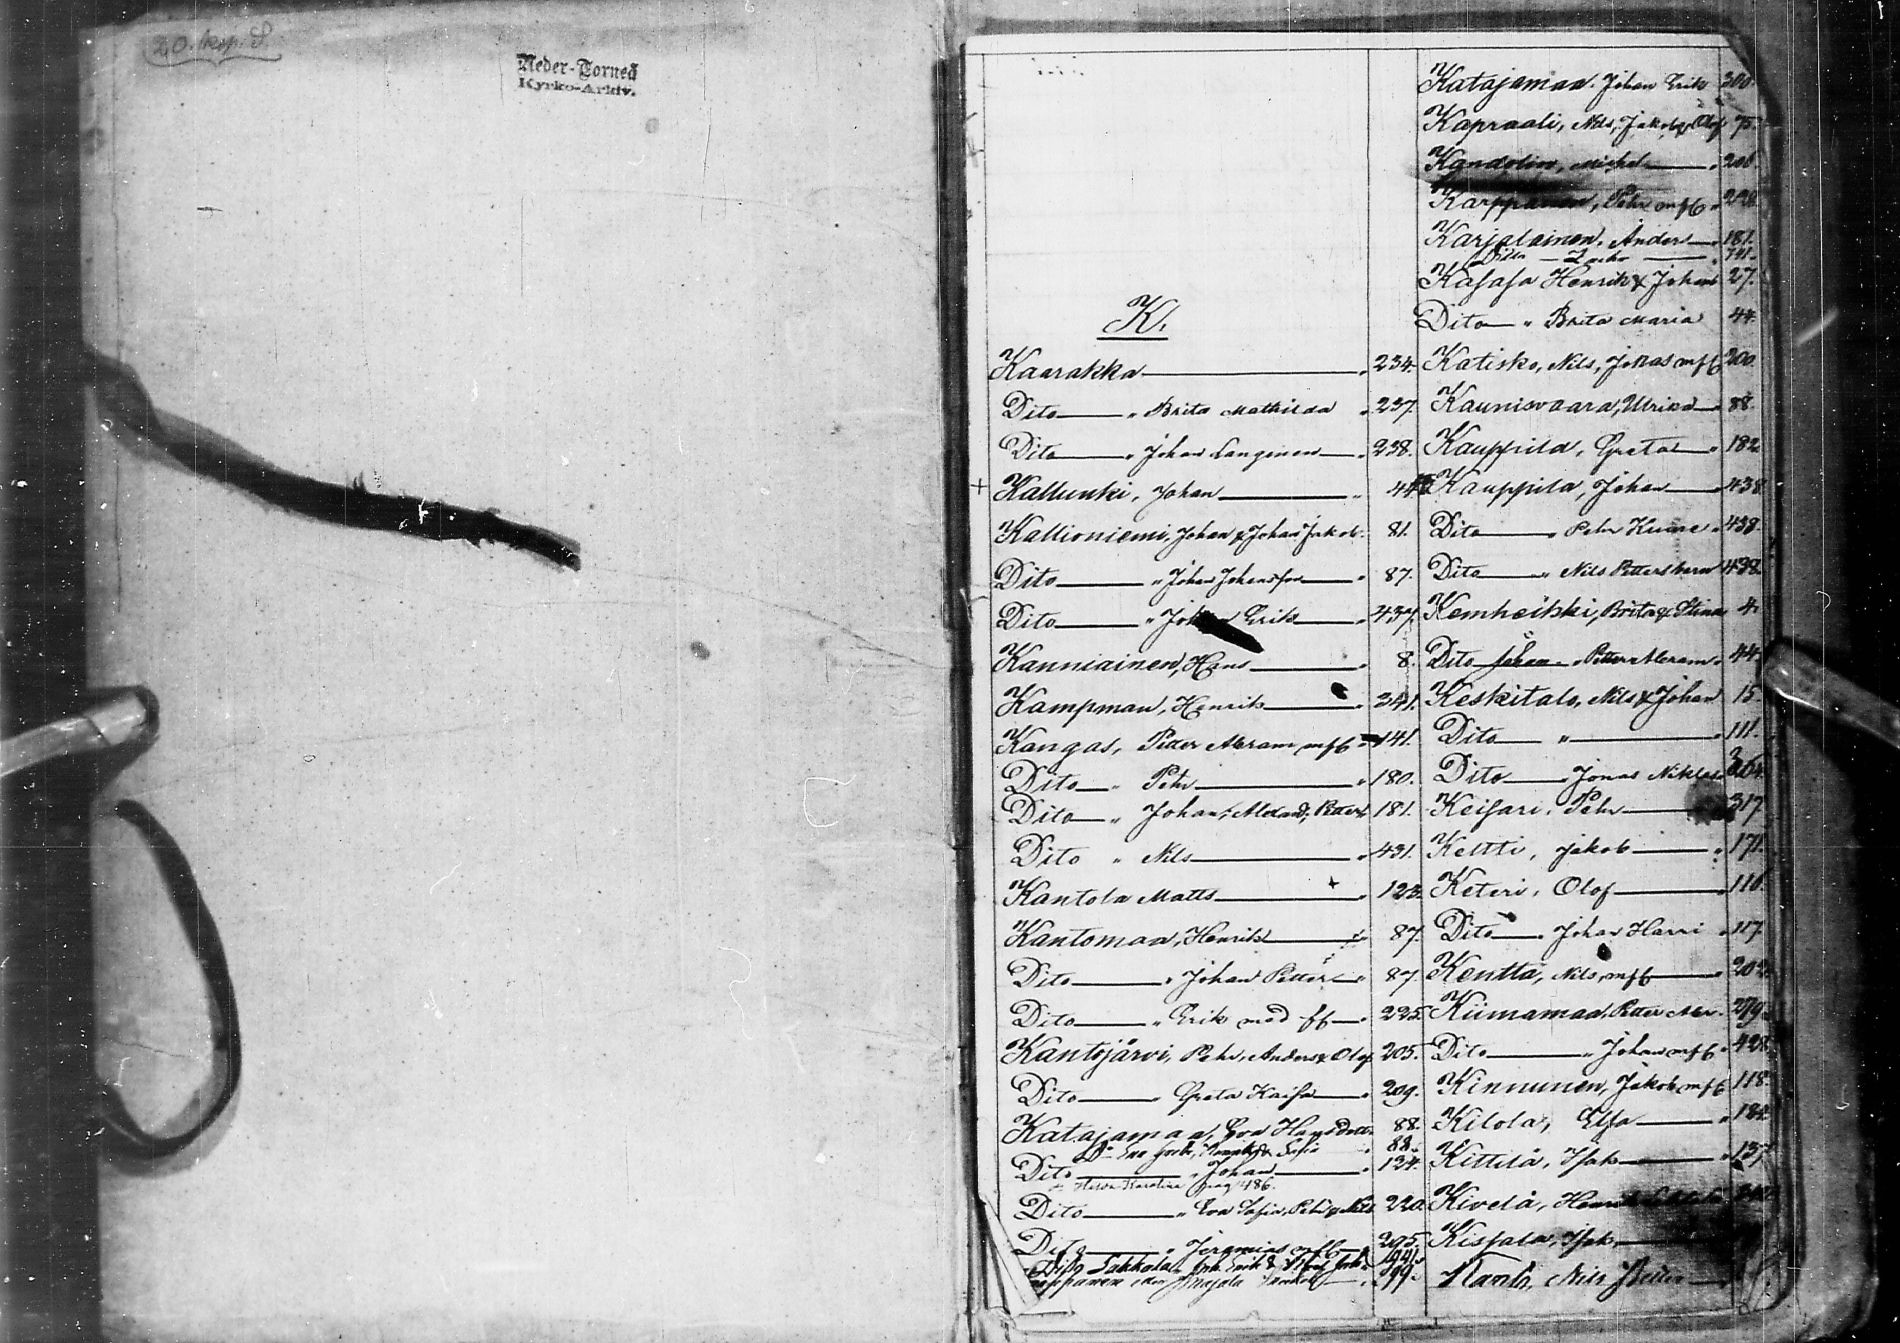 20. kap. 8.
Neder-Torneå
Kyrko-Arkiv.
K.
Kaarakka 234.
Dito " Brita Mathilda " 237.
Dito " Johan Langinen " 238.
+ Kallunki, Johan " 44
Kallioniemi, Johan & Johan Jakob. 81.
Dito " Johan Johansson " 87.
Dito " Johan Erik " 437.
Kanniainen, Hans " 8.
Kampman, Henrik " 341.
Kangas, Petter Abram mfl " 141.
Dito " Pehr " 180.
Dito " Johan, Alexand, Petter 181.
Dito " Nils " 431.
Kantola Matts " 123.
Kantomaa, Henrik " 87.
Dito " Johan Petter " 87.
Dito " Erik med ff " 225.
Kantojärvi, Pehr, Anders & Olof 205.
Dito " Greta Kaisa " 209.
Katajamaa, Eva Hansdotter 88.
Do Eva 88.
Dito " Johan " 124.
pag 486.
Dito " Eva Sofia, Pehr & Nils 220.
Dito " Jeremias mfl 295.
Dito
Katajamaa. Johan Erik 300.
Kapraali, Nils, Jakob, Olof 75.
Kandolin, Michel " 206.
Karppanen, Pehr mfl " 228.
Karjalainen, Anders " 181.
Dito
Kasasa Henrik & Johan 27.
Dito " Brita Maria 44.
Katisko, Nils, Jonas mfl 200.
Kaunisvaara, Ulrika " 88.
Kauppila, Greta " 182.
Kauppila, Johan " 438.
Dito " Pehr " 438.
Dito " Nils Petters barn 438.
Kemheikki, Brita & Stina 4.
Dito Johan " Petter Abram " 44.
Keskitalo, Nils & Johan 15.
Dito " " 111.
Dito " Jonas Niklas
Keisari, Pehr 317.
Keltti, Jakob " 171.
Keteri, Olof " 116.
Dito " Johan Harri " 117.
Kenttä, Nils, mfl " 202.
Kiimamaa, Petter Abr. 279.
Dito " Johan mfl " 428.
Kinnunen, Jakob mfl 118.
Kilola, Elsa "
Kittilä, Isak " 137.
Kivelä, Henrik
Kisjala, Isak
Nils Petter